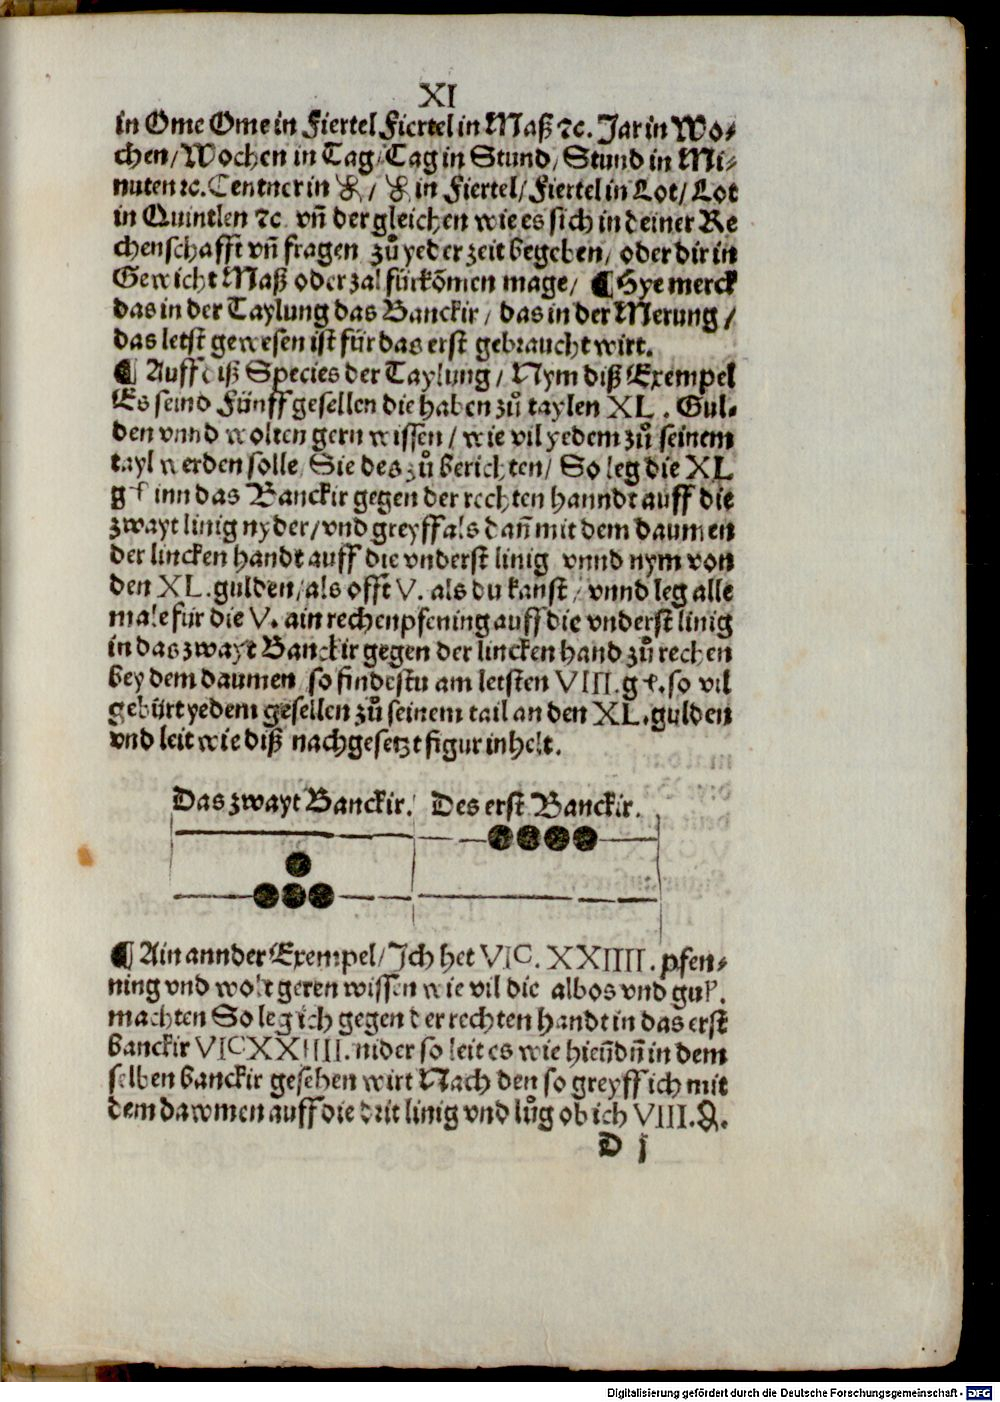 XI
in Ome Ome in Fiertel Fiertel in Maß ⁊c. Jar in Wo⸗
chen/ Wochen in Tag/ Tag in Stund/ Stund in Mi⸗
nuten ⁊c. Centner in ℔/ ℔ in Fiertel/ Fiertel in Lot/ Lot
in Quintlen ⁊c vn̄ der gleichen wie es sich in deiner Re
chenschafft vn̄ fragen zů yeder zeit begeben/ oder dir in
Gewicht Maß oder zal fürkōmen mage/ ¶ Hye merck
das in der Taylung das Banckir/ das in der Merung/
das letst gewesen ist für das erst gebraucht wirt.
¶ Auff diß Species der Taylung/ Nym diß Exempel
Es seind Fünff gesellen die haben zů taylen XL. Gul⸗
den vnnd wolten gern wissen/ wie vil yedem zů seinem
tayl werden solle/ Sie des zů berichten/ So leg die XL
gf inn das Banckir gegen der rechten hanndt auff die
zwayt linig nyder/ vnd greyff als dañ mit dem daumen
der lincken handt auff die vnderst linig vnnd nym von
den XL. gulden/ als offt V. als du kanst/ vnnd leg alle
male für die V. ain rechenpfening auff die vnderst linig
in das zwayt Banckir gegen der lincken hand zů rechen
bey dem daumen so findestu am letsten VIII. gf. so vil
gebürt yedem gesellen zů seinem tail an den XL. gulden
vnd leit wie diß nachgesetzt figur inhelt.
Das zwayt Banckir. Des erst Banckir.
¶ Ain annder Exempel/ Ich het VIC. XXIIII. pfen⸗
ning vnd wolt geren wissen wie vil die albos vnd gul.
machten So leg ich gegen der rechten handt in das erst
banckir VICXXIIII. nider so leit es wie hieñdñ in dem
selben banckir gesehen wirt Nach den so greyff ich mit
dem dawmen auff die drit linig vnd lůg ob ich VIII. ₰.
D j
Digitalisierung gefördert durch die Deutsche Forschungsgemeinschaft - DFG